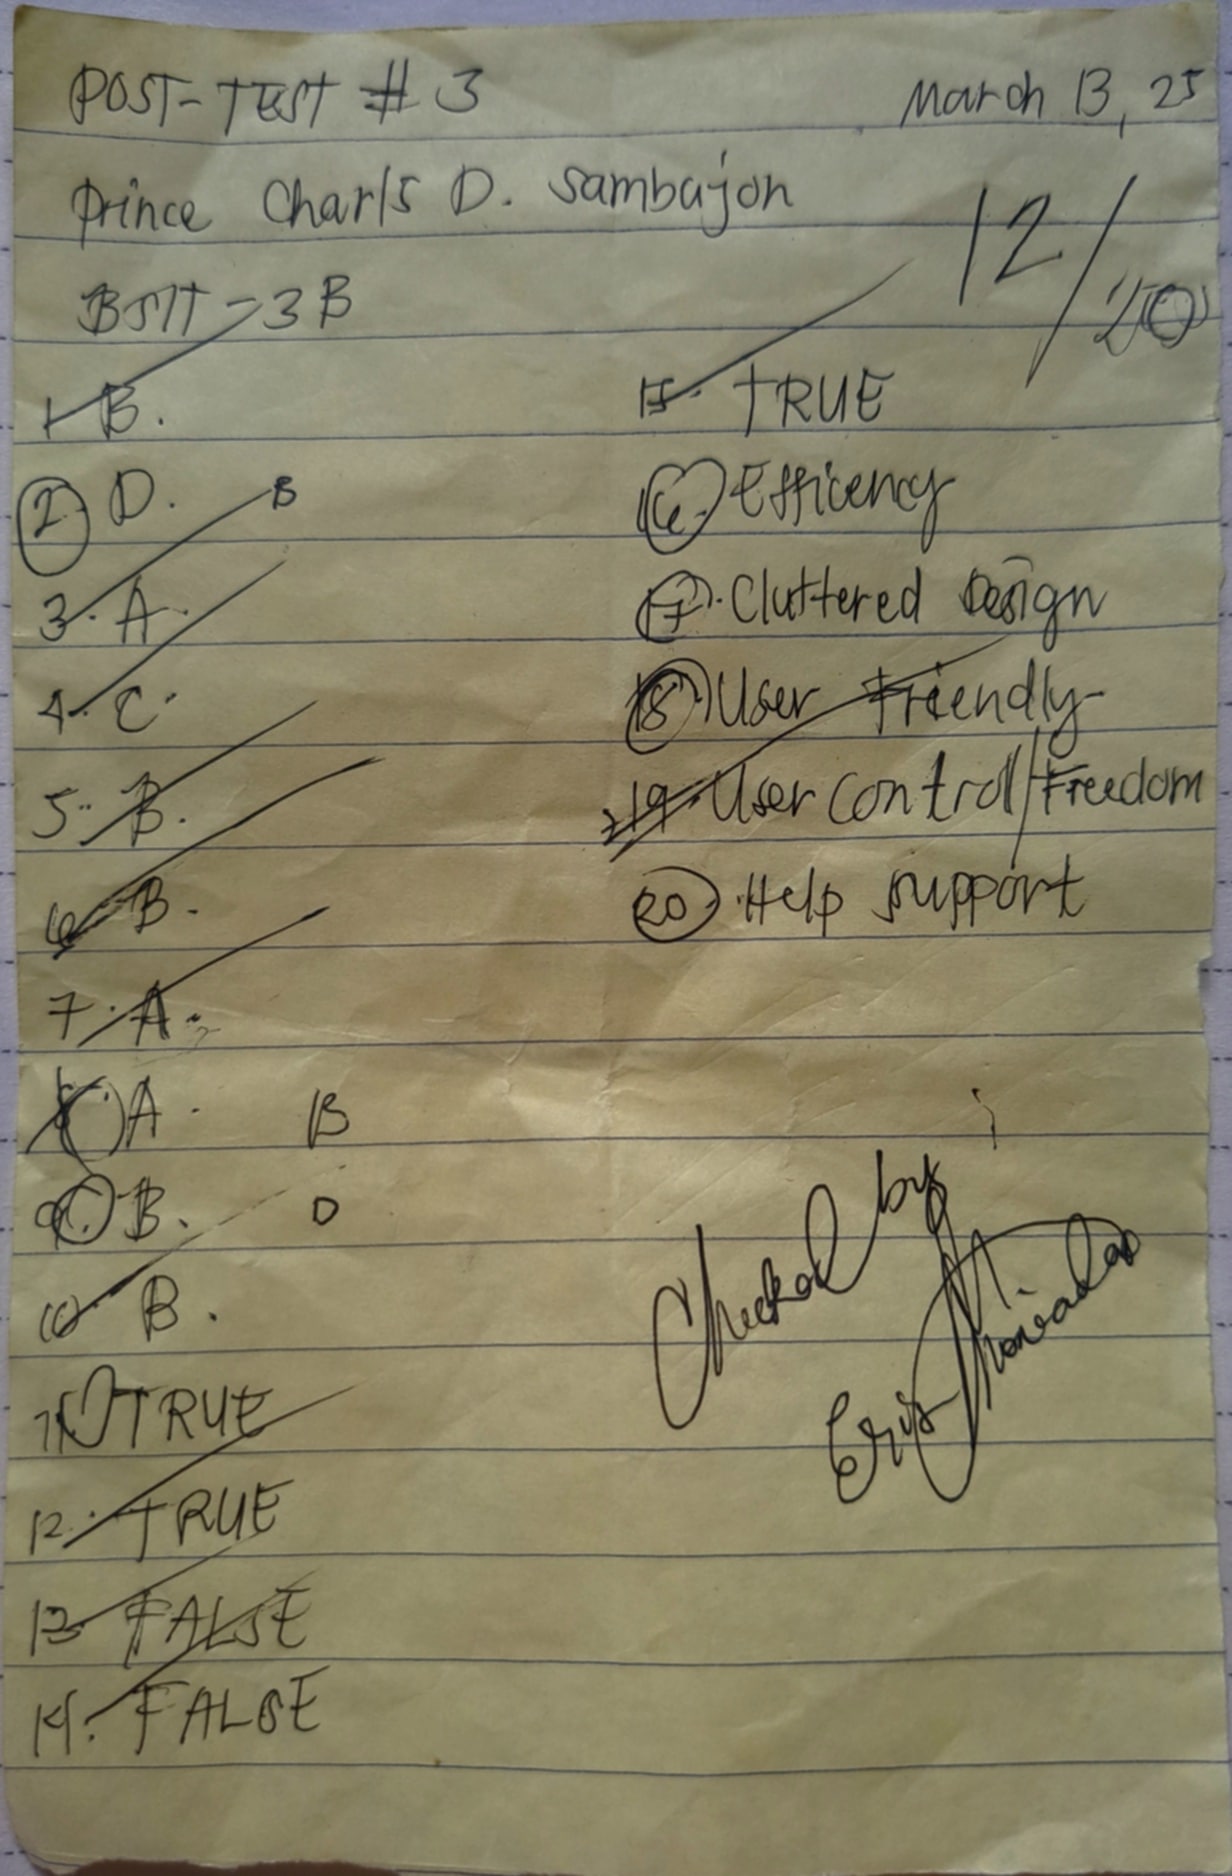 POST-TEST # 3
March 13, 25
Prince Charls D. Sambajon
12/20
BSIT - 3B
1. B.
2. D.
B
3. A.
4. C.
5. B.
6. B.
7. A.
8. A. B
9. B. D
10. B.
11. TRUE
12. TRUE
13. FALSE
14. FALSE
15. TRUE
16. Efficency
17. Cluttered Design
18. User Friendly-
19. User Control/Freedom
20. Help support
Checked by